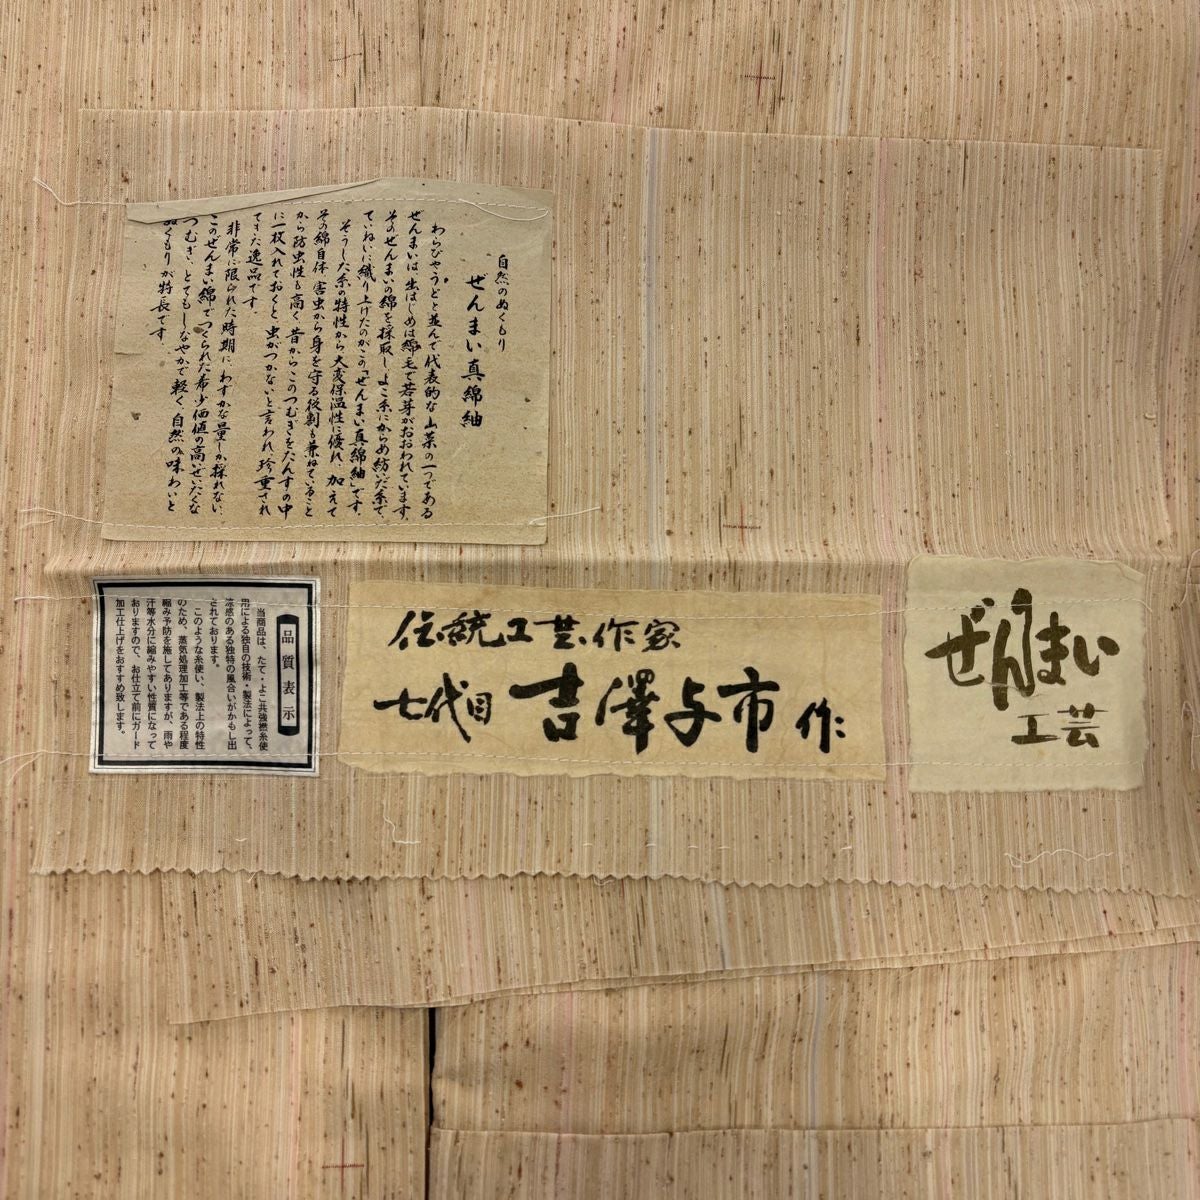 自然のぬくもり
ぜんまい真綿紬
わらびやうどと並んで代表的な山菜の一つである
ぜんまいは、出はじめは綿毛で若芽がおおわれています。
そのぜんまいの綿を採取し、よこ糸にからめ紡いだ糸で、
ていねいに織り上げたのがこの「ぜんまい真綿紬」です。
そうした糸の特性から大変保温性に優れ、加えて
その綿自体、害虫から身を守る役割も兼ねていること
から防虫性も高く、昔からこのつむぎをたんすの中
に一枚入れておくと、虫がつかないと言われ、珍重され
てきた逸品です。
非常に限られた時期に、わずかな量しか採れない、
このぜんまい綿でつくられた希少価値の高いぜいたくな
つむぎ、とてもしなやかで軽く、自然の味わいと
ぬくもりが特長です。
品質表示
当商品は、たて・よこ共強撚糸使
用による独自の技術・製法によって、
涼感のある独特の風合いがかもし出
されております。
このような糸使い、製法上の特性
のため、蒸気処理加工等である程度
縮み予防を施してありますが、雨や
汗等水分に縮みやすい性質になって
おりますので、お仕立て前にガード
加工仕上げをおすすめ致します。
伝統工芸作家
七代目 吉澤与市 作
ぜんまい
工芸